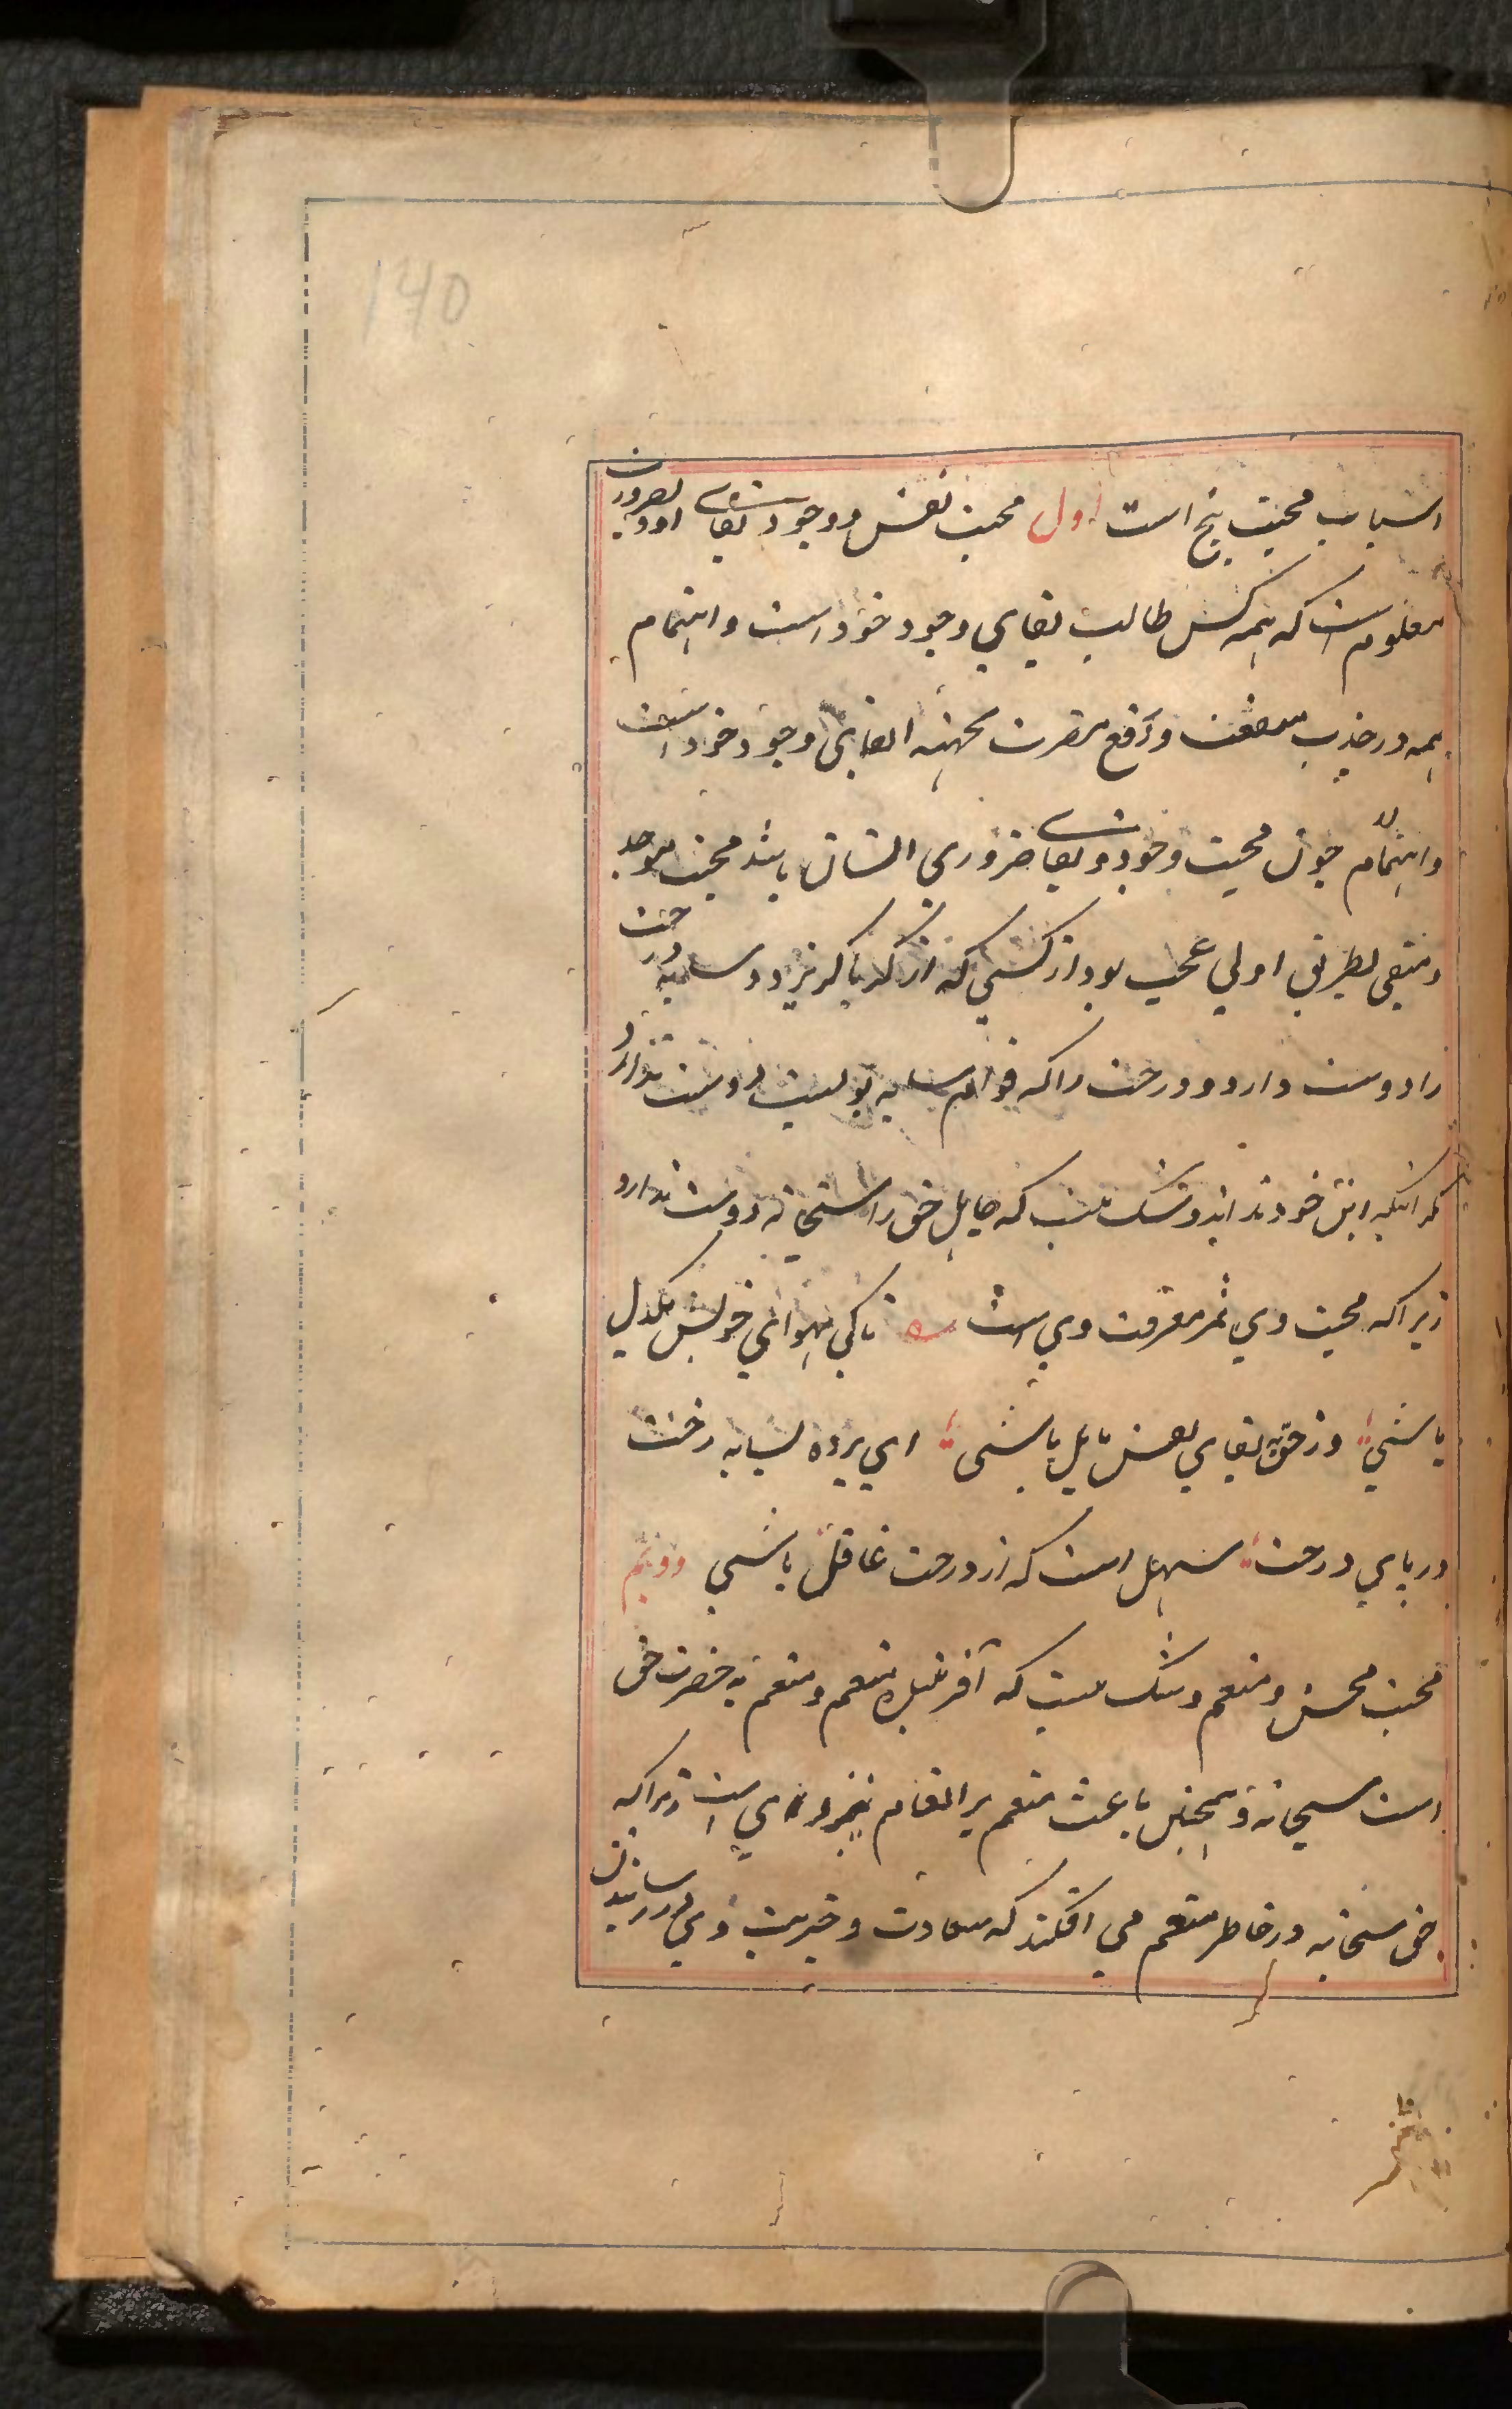 140
اسباب محبت پنج است اول محبت نفس و وجود و بقای او و بضرورت
معلوم است که همه کس طالب بقای وجود خود است و اهتمام
همه در جذب منفعت و دفع مضرت بجهته ابقای وجود خود است
و اهتمام چون محبت وجود و بقا ضروری انسان باشد محبت موجد
و مبقی بطریق اولی عجب بود از کسی که از گرما گریزد و سایه درخت
را دوست دارد و درخت را که قوام سایه بویست دوست ندارد
مگر آنکه این خود نداند و شک نیست که جاهل حق را سبحانه دوست ندارد
زیرا که محبت وی ثمر معرفت وی است تا کی بهوای خویش یکدل
باشی وز حق ببقای نفس مایل باشی ای برده بسایه رخت
در پای درخت سهل است که از درخت غافل باشی دویم
محبت محسن و منعم و شک نیست که آفریننده منعم و منعم به حضرت حق
است سبحانه و همچنین باعث منعم بر انعام نیز وی است زیرا که
حق سبحانه در خاطر منعم می افکند که سعادت و خیریت وی در رسانیدن